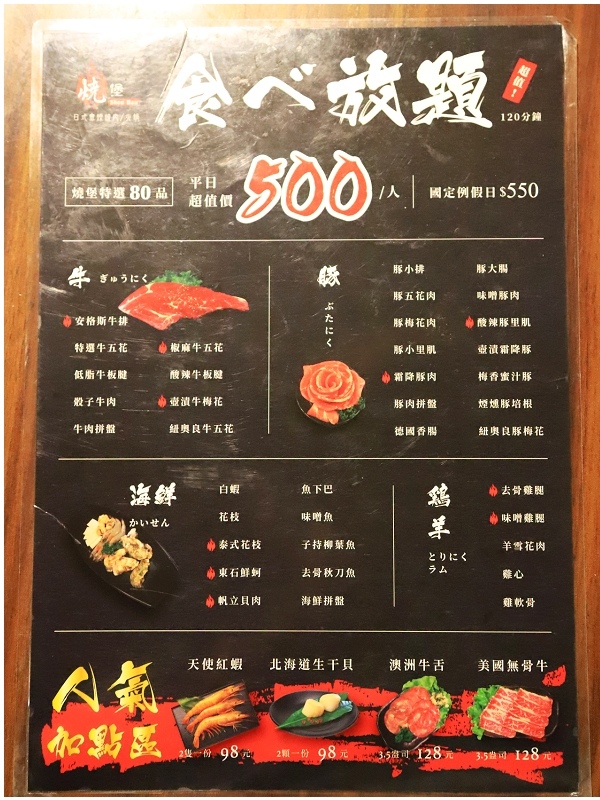 食べ放題
超值！
120分鐘
燒
堡
日式食放燒肉/火鍋
燒堡特選80品
平日
超值價
500/人
國定例假日$550
牛 ぎゅうにく
安格斯牛排
特選牛五花
低脂牛板腱
骰子牛肉
牛肉拼盤
椒麻牛五花
酸辣牛板腱
壺漬牛梅花
紐奧良牛五花
豚
ぶたにく
豚小排
豚五花肉
豚梅花肉
豚小里肌
霜降豚肉
豚肉拼盤
德國香腸
豚大腸
味噌豚肉
酸辣豚里肌
壺漬霜降豚
梅香蜜汁豚
煙燻豚培根
紐奧良豚梅花
海鮮
かいせん
白蝦
花枝
泰式花枝
東石鮮蚵
帆立貝肉
魚下巴
味噌魚
子持柳葉魚
去骨秋刀魚
海鮮拼盤
鶏
羊
とりにく
ラム
去骨雞腿
味噌雞腿
羊雪花肉
雞心
雞軟骨
人氣
加點區
天使紅蝦
2隻一份 98元
北海道生干貝
2顆一份 98元
澳洲牛舌
3.5盎司 128元
美國無骨牛
3.5盎司 128元